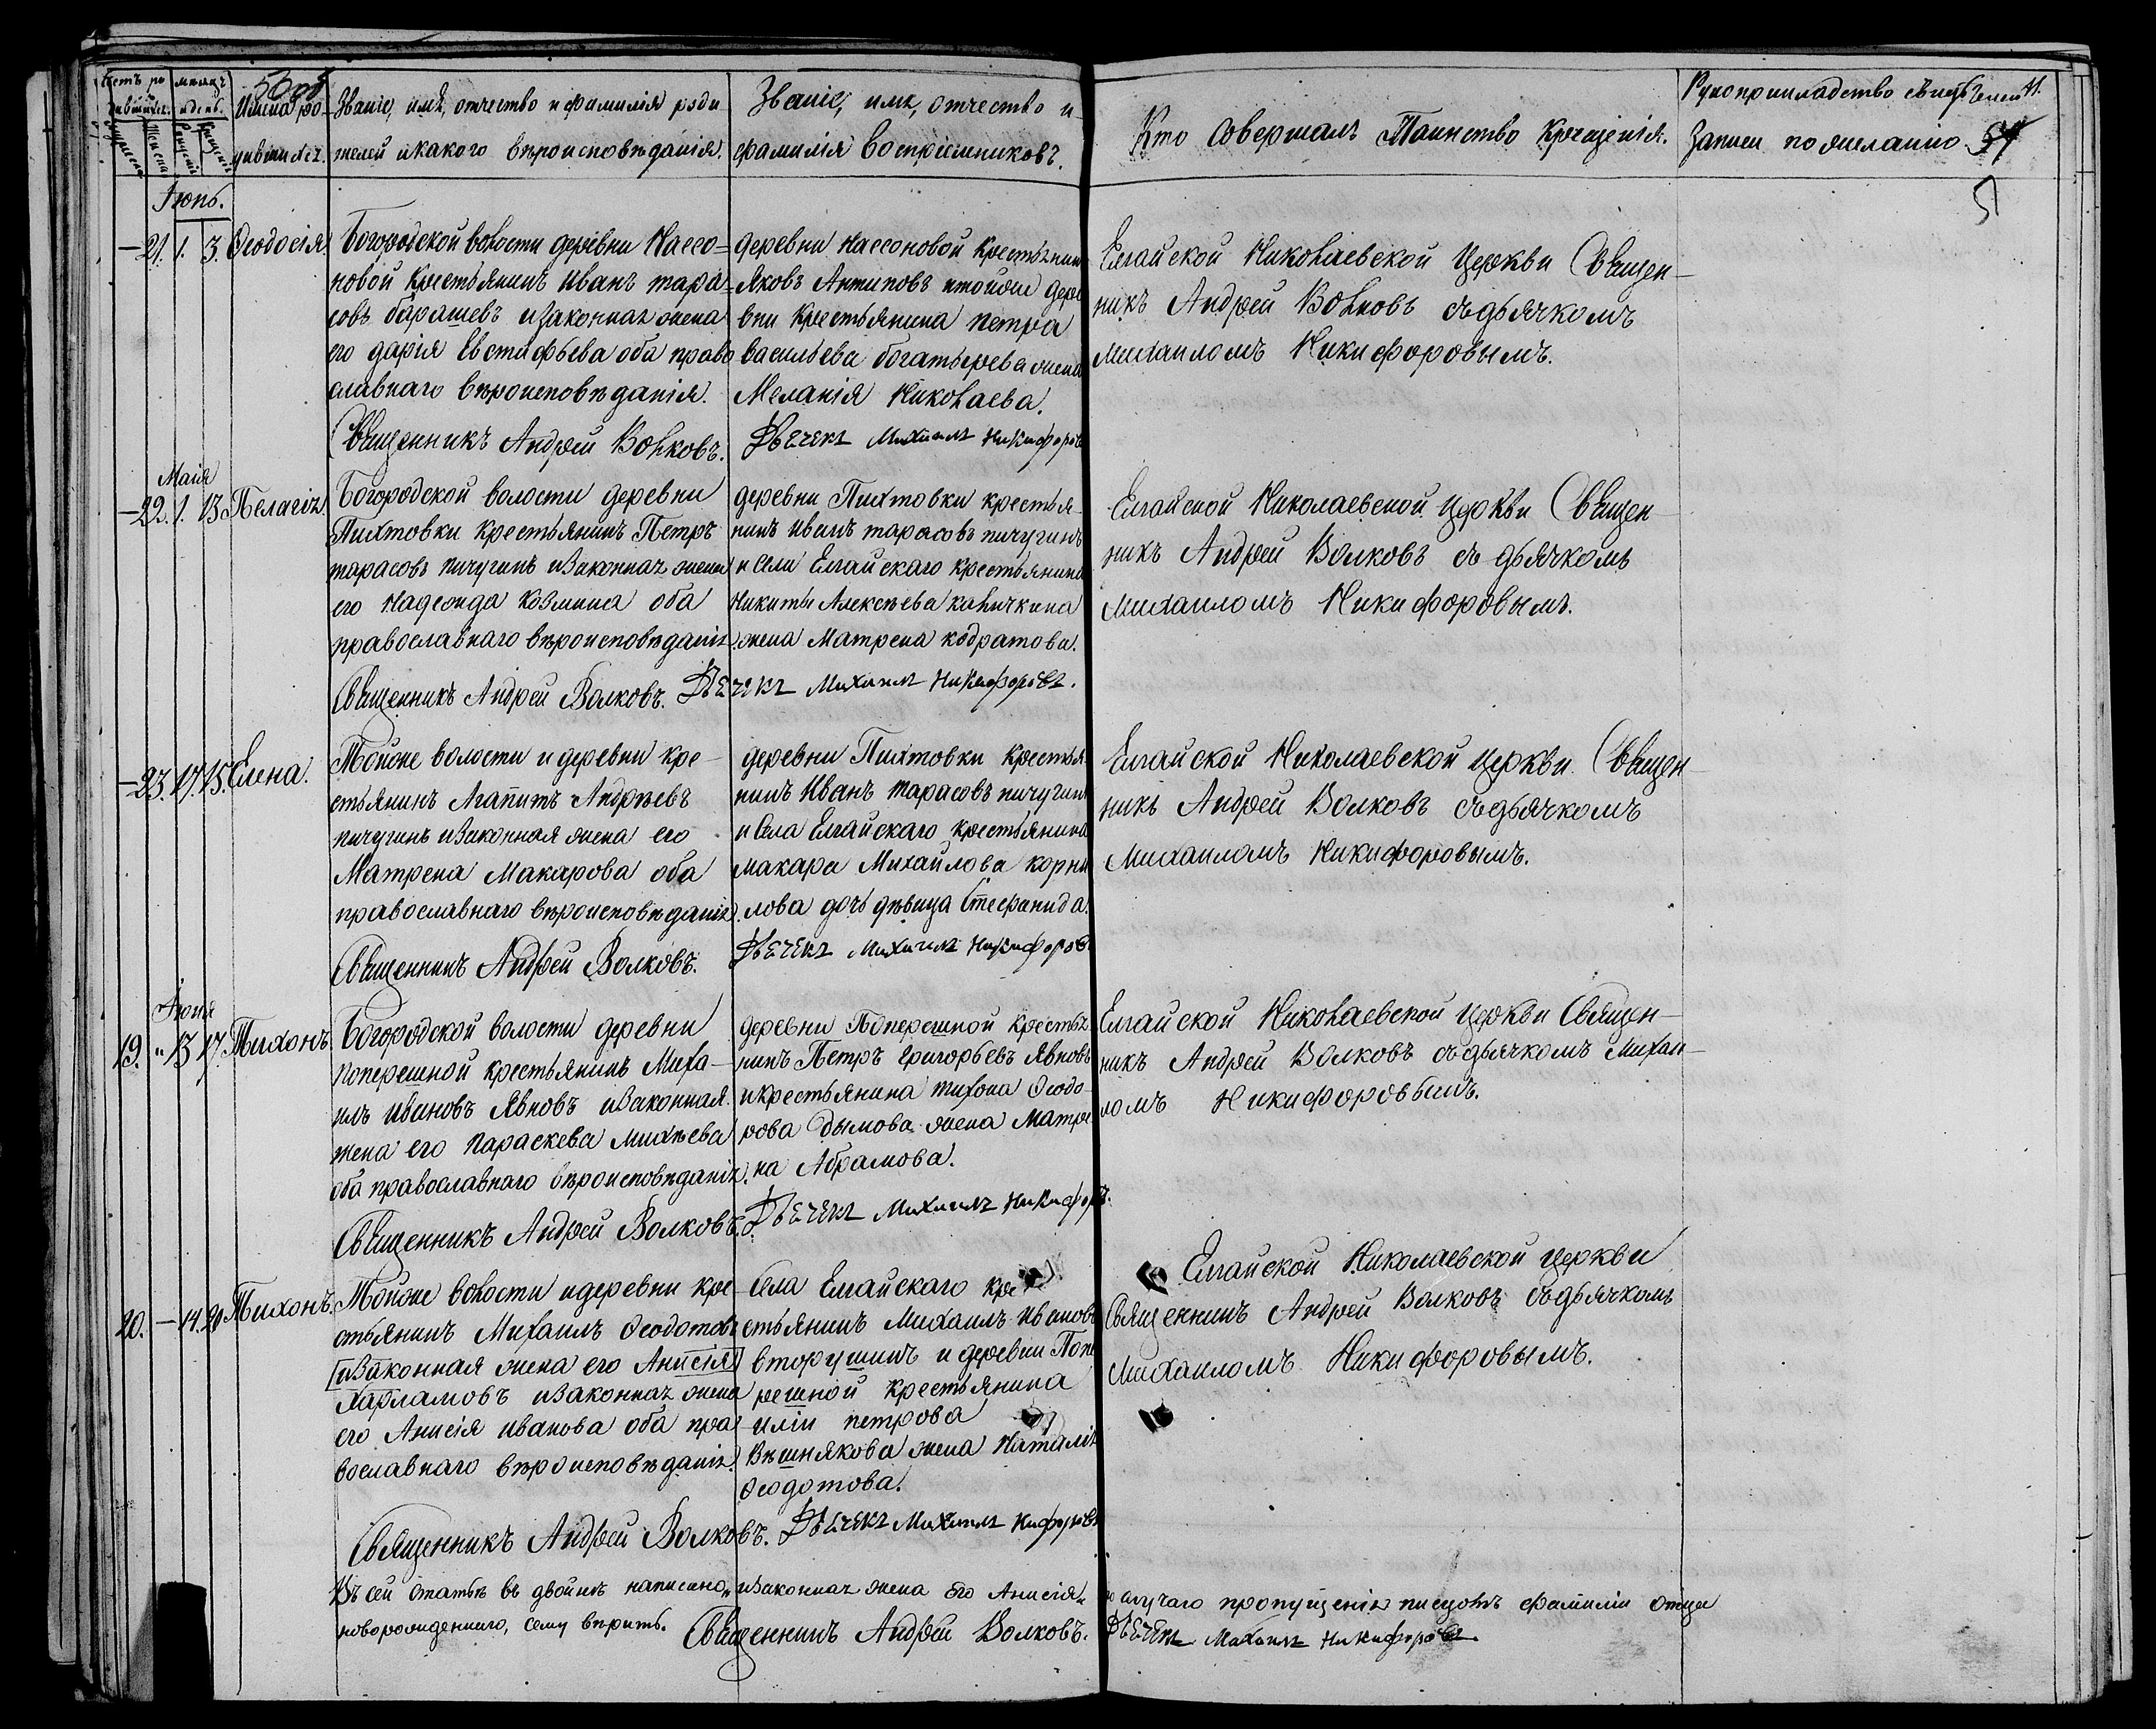 Счетъ ро
дившихся.
мѣсяцъ
и день.
Имена ро
дившихся.
Званіе, имя, отчество и фамилія роди
телей и какого вѣроисповѣданія.
Званіе, имя, отчество и
фамилія воспріемниковъ.
Кто совершалъ Таинство крещенія.
Рукоприкладство свидѣтелей
записи по желанію
Іюнь.
21. 1. 3. Ѳеодосія.
Богородской волости деревни Нассо=
новой крестьянинъ Иванъ тара=
совъ барашевъ изаконная жена
его дарія Евстифьева оба право
славнаго вѣроисповѣданія.
Священникъ Андрей Волковъ.
деревни Нассоновой крестьянинъ
Яковъ Антиповъ итойже дере
вни крестьянина петра
васильева богатырева жена
Меланія Николаева.
Дьячекъ Михаилъ Никифоровъ
Елгайской Николаевской Церкви Священ-
никъ Андрей Волковъ съдьячкомъ
Михаиломъ Никифоровымъ.
Маія
22. 1. 13. Пелагія.
Богородской волости деревни
Пихтовки крестьянинъ Петръ
тарасовъ пичугинъ изаконная жена
его Надежда козмина оба
православнаго вѣроисповѣданія.
Священникъ Андрей Волковъ.
деревни Пихтовки крестья
нинъ Иванъ тарасовъ пичугинъ
и Села Елгайскаго крестьянина
Никиты Алексѣева каничкина
жена Матрена кодратова.
Дьячекъ Михаилъ Никифоровъ.
Елгайской Николаевской Церкви Священ-
никъ Андрей Волковъ съ дьячкомъ
михаиломъ Никифоровымъ.
23. 17. 15. Елена.
Тойже волости и деревни кре-
стьянинъ Агапитъ Андреевъ
пичугинъ изаконная жена его
Матрена Макарова оба
православнаго вѣроисповѣданія.
Священникъ Андрей Волковъ.
деревни Пихтовки крестья
нинъ Иванъ тарасовъ пичугинъ
и Села Елгайскаго крестьянина
макара Михайлова корни
лова дочь дѣвица Стефанида.
Дьячекъ Михаилъ Никифоровъ
Елгайской Николаевской церкви Священ-
никъ Андрей Волковъ съдьячкомъ
Михаиломъ Никифоровымъ.
Іюня
19. " 13 17. Тихонъ.
Богородской волости деревни
поперешной крестьянинъ Миха-
илъ ивановъ Явновъ изаконная
жена его параскева михѣева
оба православнаго вѣроисповѣданія.
Священникъ Андрей Волковъ.
деревни Поперешной крестья
нинъ Петръ григорьевъ Явновъ
икрестьянина тихона Ѳеодо-
рова дымова жена Матре
на Абрамова.
Дьячекъ Михаилъ Никифоровъ.
Елгайской Николаевской церкви Священ-
никъ Андрей Волковъ съдьячкомъ михаи-
ломъ Никифоровымъ.
20. - 14. 20 Тихонъ.
Тойже волости идеревни кре-
стьянинъ Михаилъ Ѳеодотовъ
изаконная жена его Анисія
Харламовъ изаконная жена
его Анисія иванова оба пра
вославнаго вѣроисповѣданія.
Священникъ Андрей Волковъ.
Села Елгайскаго кре
стьянинъ Михаилъ ивановъ
вторушинъ и деревни Попе
решной крестьянина
иліи петрова
Вѣшнякова жена Наталія
Ѳеодотова.
Дьячекъ Михаилъ Никифоровъ
Елгайской Николаевской церкви
Священникъ Андрей Волковъ съдьячкомъ
Михаиломъ Никифоровымъ.
Въ сей статьѣ въ двойнѣ написано „изаконная жена его Анисія„ по случаю пропущенія писцомъ фамиліи отца
новорожденнаго, сему вѣрить. Священникъ Андрей Волковъ. Дьячекъ Михаилъ Никифоровъ.